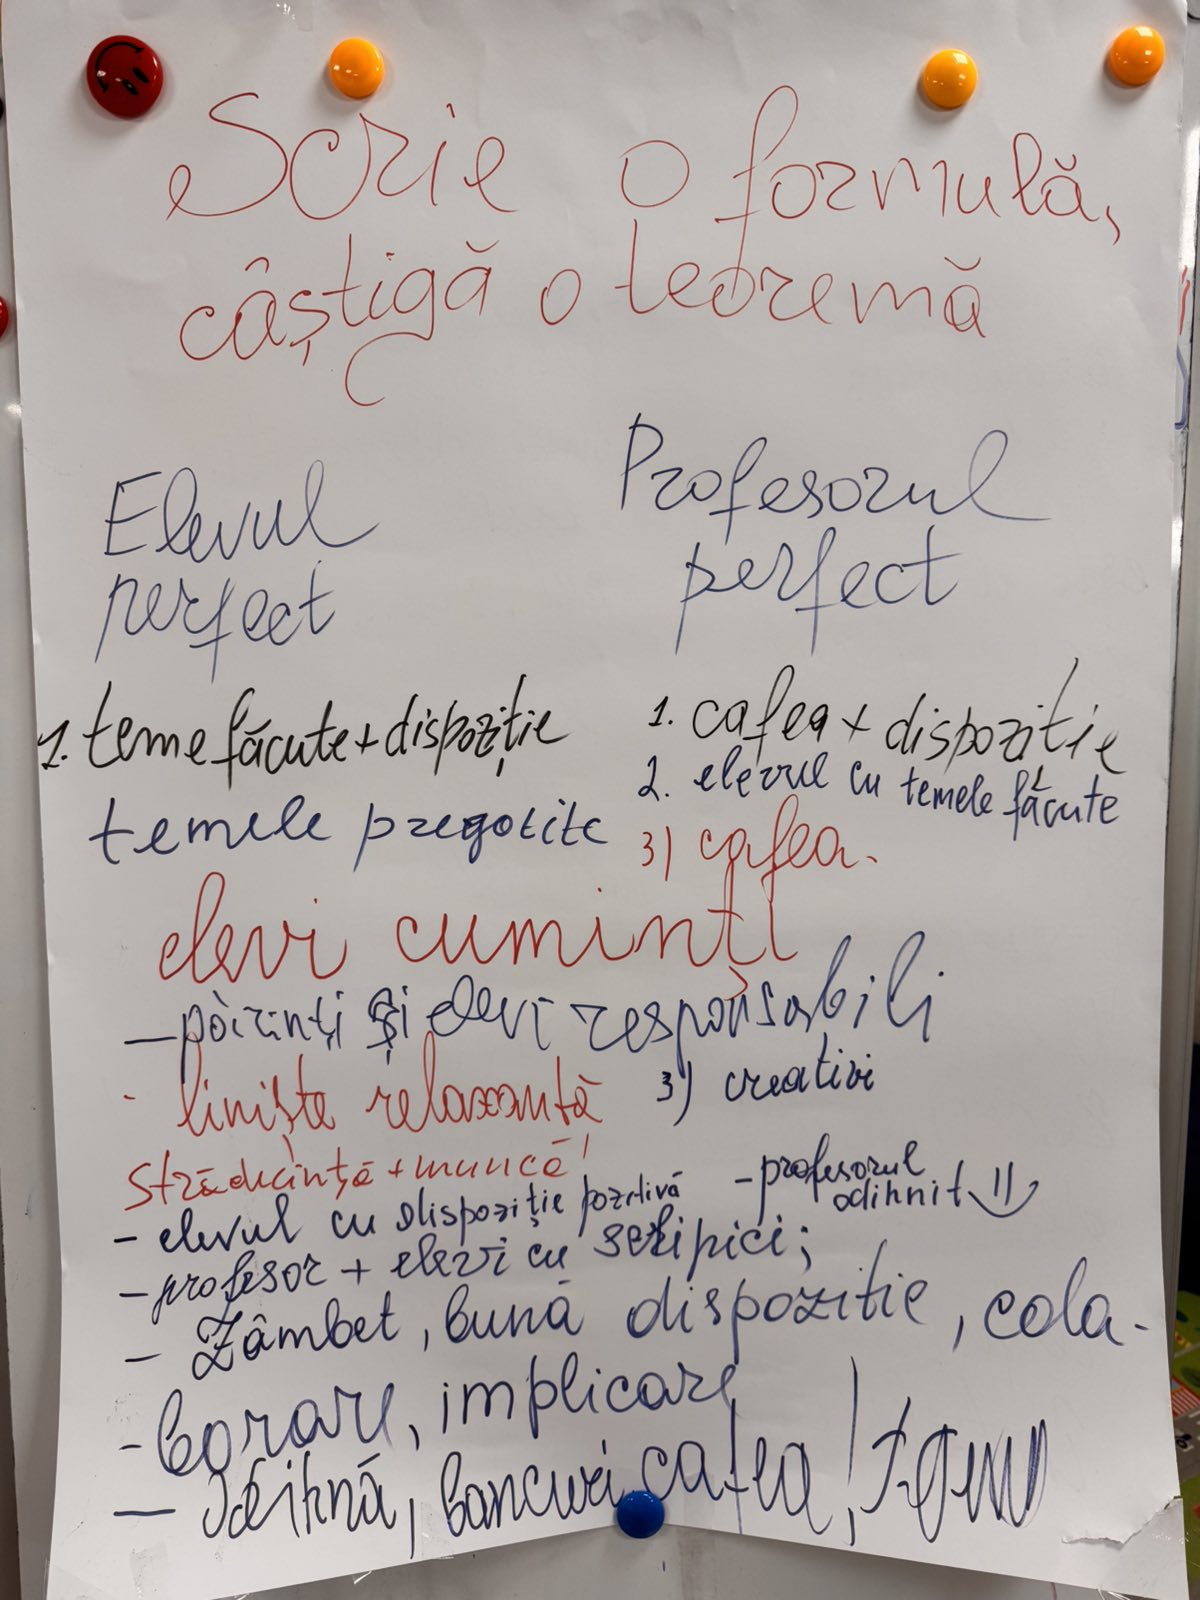 Scrie o formulă,
câștigă o teoremă
Elevul
perfect
Profesorul
perfect
1. teme făcute + dispoziție
temele pregotite
1. cafea + dispoziție
2. elevul cu temele făcute
3) cafea.
elevi cuminți
– părinți și elevi responsabili
- liniște relaxantă
3) creativi
străducință + muncă!
– elevul cu dispoziție pozitivă
– profesorul
odihnit
– profesor + elevi cu sclipici;
– Zâmbet, bună dispoziție, cola-
- borare, implicare
– Odihnă, bancuri, cafea!